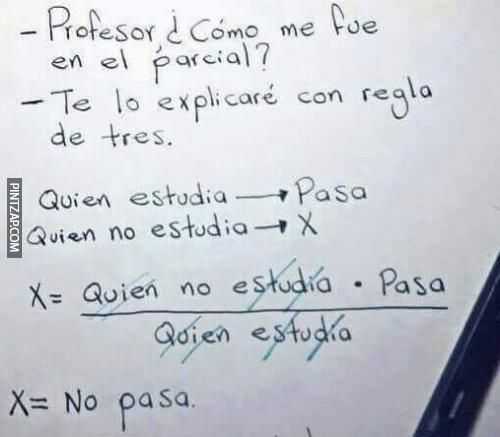 - Profesor, ¿Cómo me fue
en el parcial?
- Te lo explicaré con regla
de tres.
Quien estudia → Pasa
Quien no estudia → X
X= Quien no estudia · Pasa
Quien estudia
X= No pasa.
PINTZAP.COM